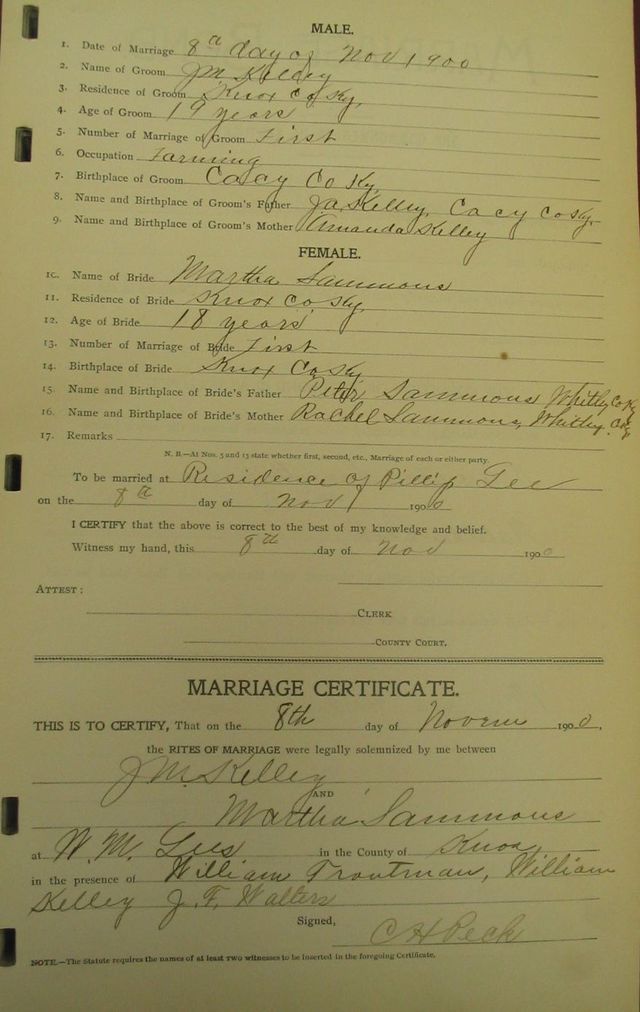 MALE.
1. Date of Marriage 8th day of Nov 1900
2. Name of Groom J M Kelley
3. Residence of Groom Knox Co Ky,
4. Age of Groom 19 years
5. Number of Marriage of Groom First
6. Occupation Farming
7. Birthplace of Groom Cacy Co Ky,
8. Name and Birthplace of Groom's Father Ja. Kelley, Cacy Co Ky.
9. Name and Birthplace of Groom's Mother Amanda Kelley
FEMALE.
10. Name of Bride Martha Sammons
11. Residence of Bride Knox Co Ky,
12. Age of Bride 18 years
13. Number of Marriage of Bride First
14. Birthplace of Bride Knox Co Ky
15. Name and Birthplace of Bride's Father Peter Sammons Whitley Co Ky
16. Name and Birthplace of Bride's Mother Rachel Sammons, Whitley. Co Ky
17. Remarks
N. B.—At Nos. 5 and 13 state whether first, second, etc., Marriage of each or either party.
To be married at Residence of Pillip Lee
on the 8th day of Nov 1900
I CERTIFY that the above is correct to the best of my knowledge and belief.
Witness my hand, this 8th day of Nov 1900
ATTEST:
CLERK
COUNTY COURT.
MARRIAGE CERTIFICATE.
THIS IS TO CERTIFY, That on the 8th day of Novem 1900.
the RITES OF MARRIAGE were legally solemnized by me between
J M Kelley
AND
Martha Sammons
at W. M. Lees in the County of Knox,
in the presence of William Troutman, William
Kelley J. F. Walters
Signed,
C H Peck
NOTE.—The Statute requires the names of at least two witnesses to be inserted in the foregoing Certificate.